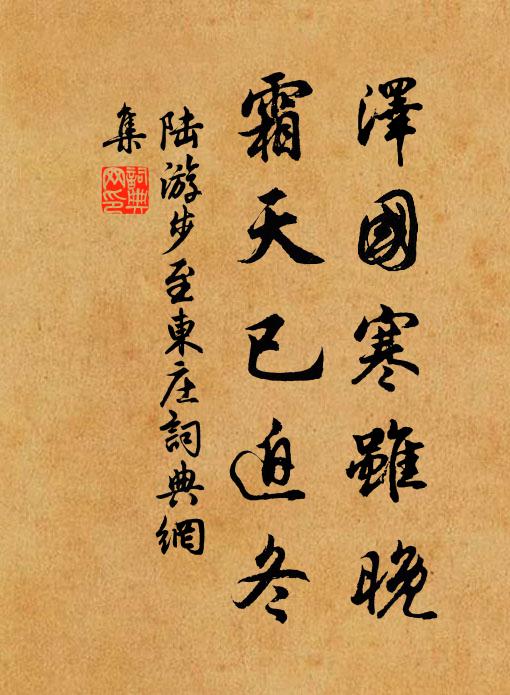 澤國寒雖晚
霜天已迫冬
陸游步至東庄詞典網
集
詞典
网印